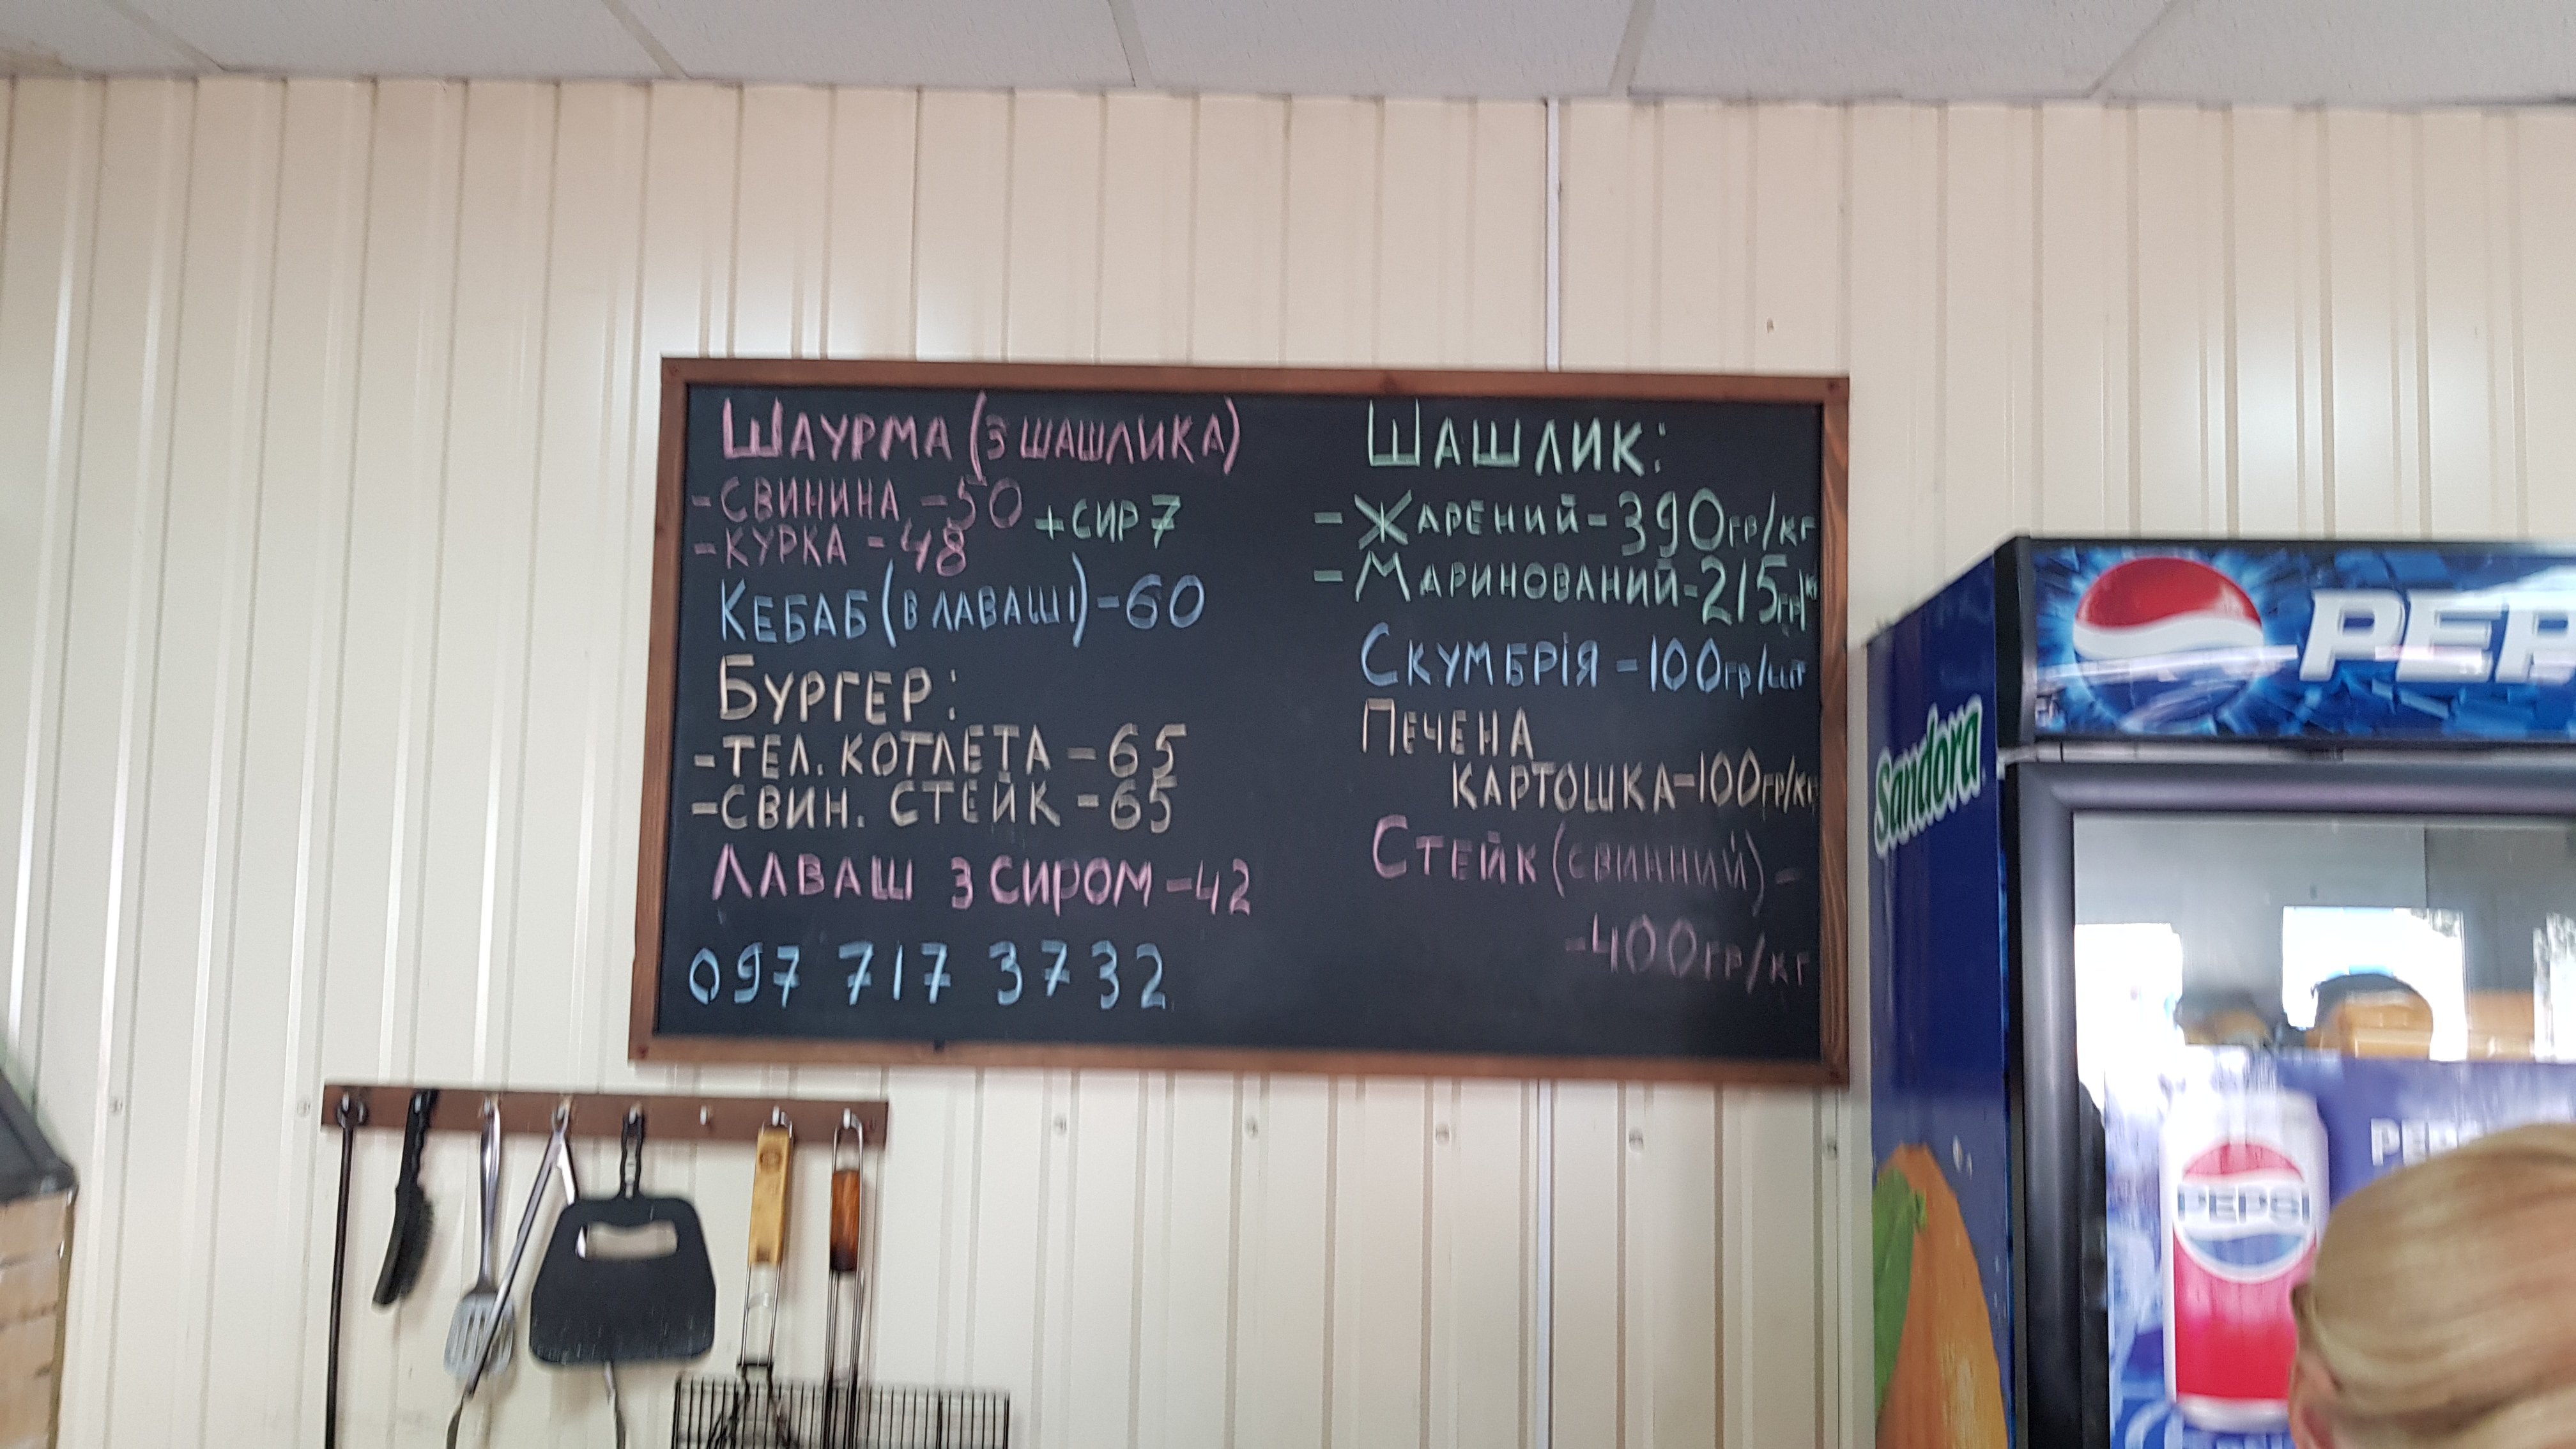 ШАУРМА (З ШАШЛИКА)
-СВИНИНА -50
+СИР 7
-КУРКА -48
КЕБАБ (В ЛАВАШІ) -60
БУРГЕР:
-ТЕЛ. КОТЛЕТА -65
-СВИН. СТЕЙК -65
ЛАВАШ З СИРОМ -42
097 717 3732
ШАШЛИК:
- ЖАРЕНИЙ - 390гр/кг
- МАРИНОВАНИЙ -215гр/кг
СКУМБРІЯ -100гр/шт
ПЕЧЕНА
КАРТОШКА -100гр/кг
СТЕЙК (СВИННИЙ) -
-400гр/кг
Sandora
PEPSI